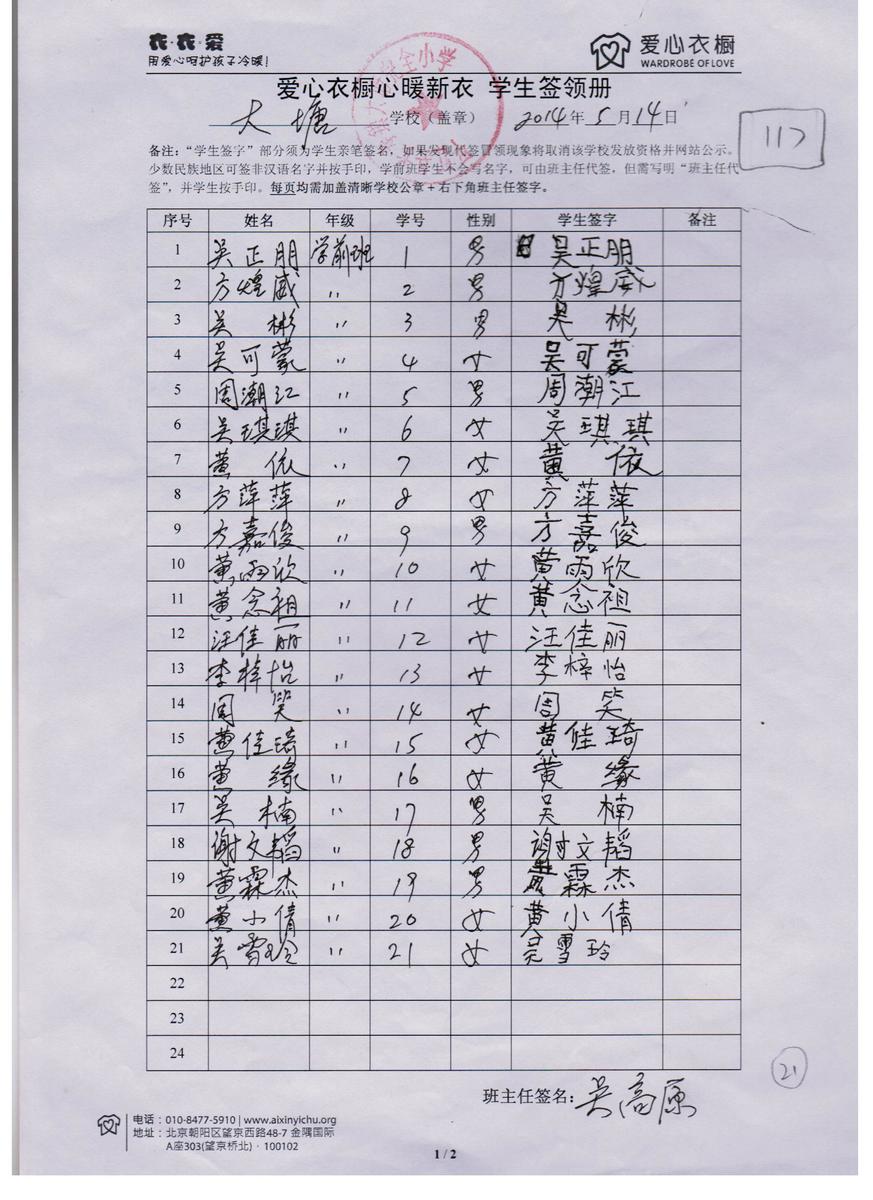 衣·衣·爱
用爱心呵护孩子冷暖!
爱心衣橱
WARDROBE OF LOVE
完全小学
爱心衣橱心暖新衣 学生签领册
大塘 学校（盖章） 2014年5月14日
117
备注：“学生签字”部分须为学生亲笔签名，如果发现代签冒领现象将取消该学校发放资格并网站公示。
少数民族地区可签非汉语名字并按手印，学前班学生不会写名字，可由班主任代签，但需写明“班主任代
签”，并学生按手印。每页均需加盖清晰学校公章+右下角班主任签字。
序号 姓名 年级 学号 性别 学生签字 备注
1 吴正朋 学前班 1 男 吴正朋
2 方煌威 〃 2 男 方煌威
3 吴彬 〃 3 男 吴彬
4 吴可蒙 〃 4 女 吴可蒙
5 周潮江 〃 5 男 周潮江
6 吴琪琪 〃 6 女 吴琪琪
7 黄依 〃 7 女 黄依
8 方萍萍 〃 8 女 方萍萍
9 方嘉俊 〃 9 男 方嘉俊
10 黄雨欣 〃 10 女 黄雨欣
11 黄念祖 〃 11 女 黄念祖
12 汪佳丽 〃 12 女 汪佳丽
13 李梓怡 〃 13 女 李梓怡
14 周笑 〃 14 女 周笑
15 黄佳琦 〃 15 女 黄佳琦
16 黄缘 〃 16 女 黄缘
17 吴楠 〃 17 男 吴楠
18 谢文韬 〃 18 男 谢文韬
19 黄霖杰 〃 19 男 黄霖杰
20 黄小倩 〃 20 女 黄小倩
21 吴雪玲 〃 21 女 吴雪玲
22
23
24
21
班主任签名：吴高原
电话：010-8477-5910 | www.aixinyichu.org
地址：北京朝阳区望京西路48-7 金隅国际
A座303(望京桥北) · 100102
1 / 2